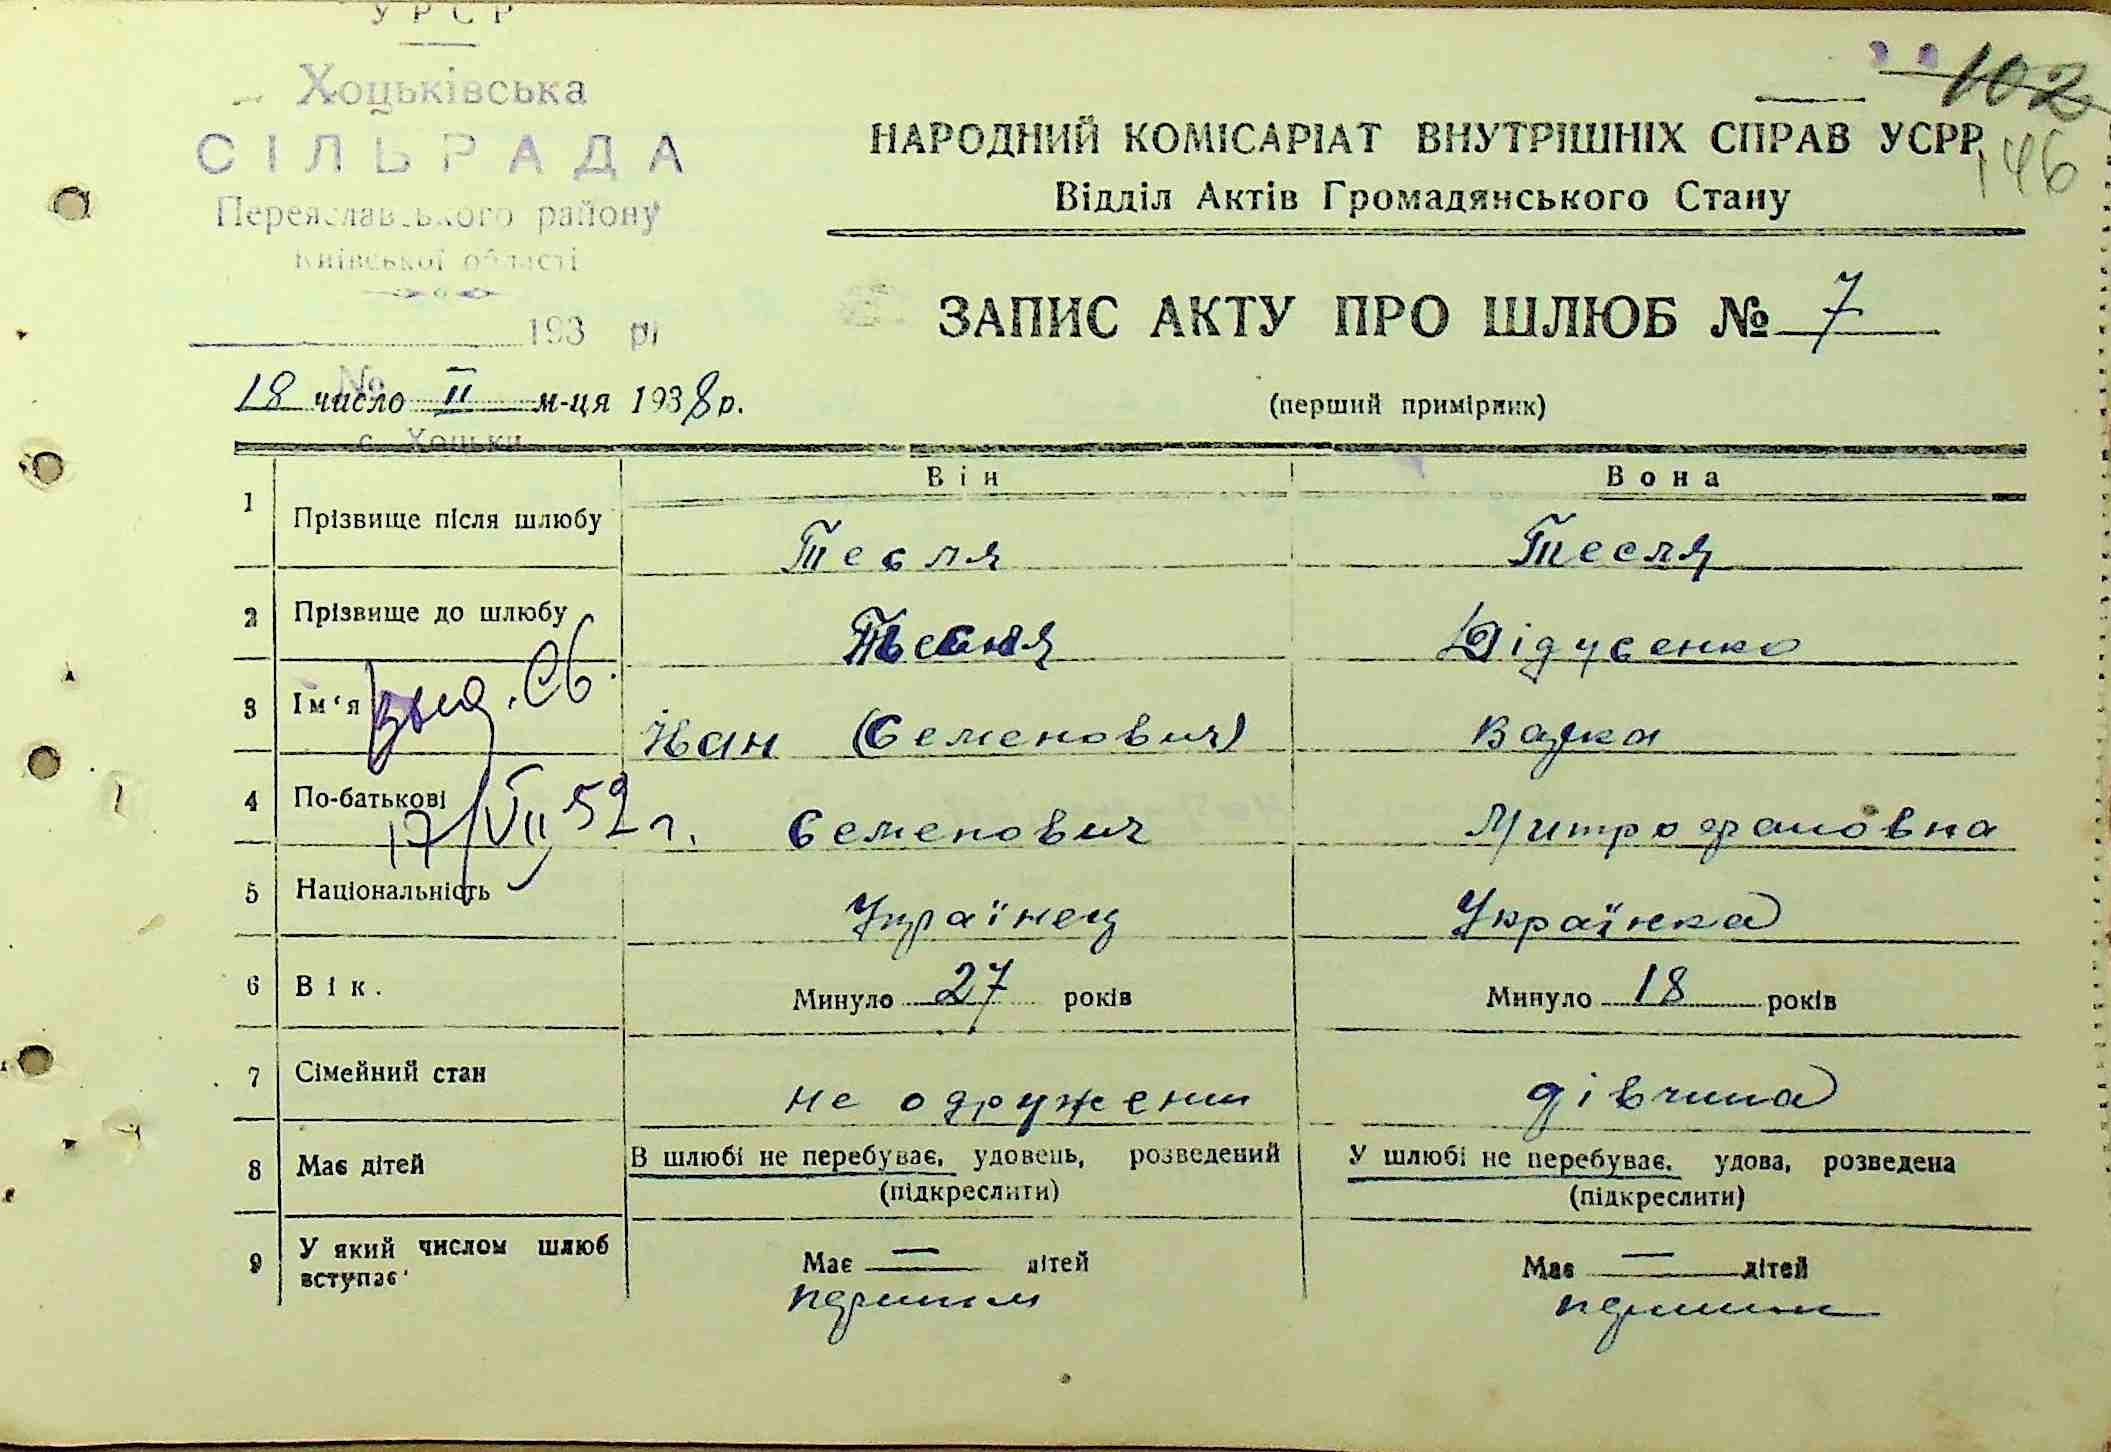 УРСР
Хоцьківська
СІЛЬРАДА
Переяславського району
Київської області
193 р.
№
с. Хоцьки
102
146
НАРОДНИЙ КОМІСАРІАТ ВНУТРІШНІХ СПРАВ УСРР
Відділ Актів Громадянського Стану
ЗАПИС АКТУ ПРО ШЛЮБ № 7
18 число II м-ця 1938 р.
(перший примірник)
Він Вона
1 Прізвище після шлюбу Тесля Тесля
2 Прізвище до шлюбу Тесля Дідусенко
3 Ім'я Иван (Семенович) Варка
выд. Св.
4 По-батькові Семенович Митрофановна
17/VII 52 г.
5 Національність Українец Українка
6 Вік. Минуло 27 років Минуло 18 років
7 Сімейний стан не одружении дівчина
8 Має дітей В шлюбі не перебуває, удовець, розведений У шлюбі не перебуває, удова, розведена
(підкреслити) (підкреслити)
9 У який числом шлюб вступає Має — дітей Має — дітей
першим першим